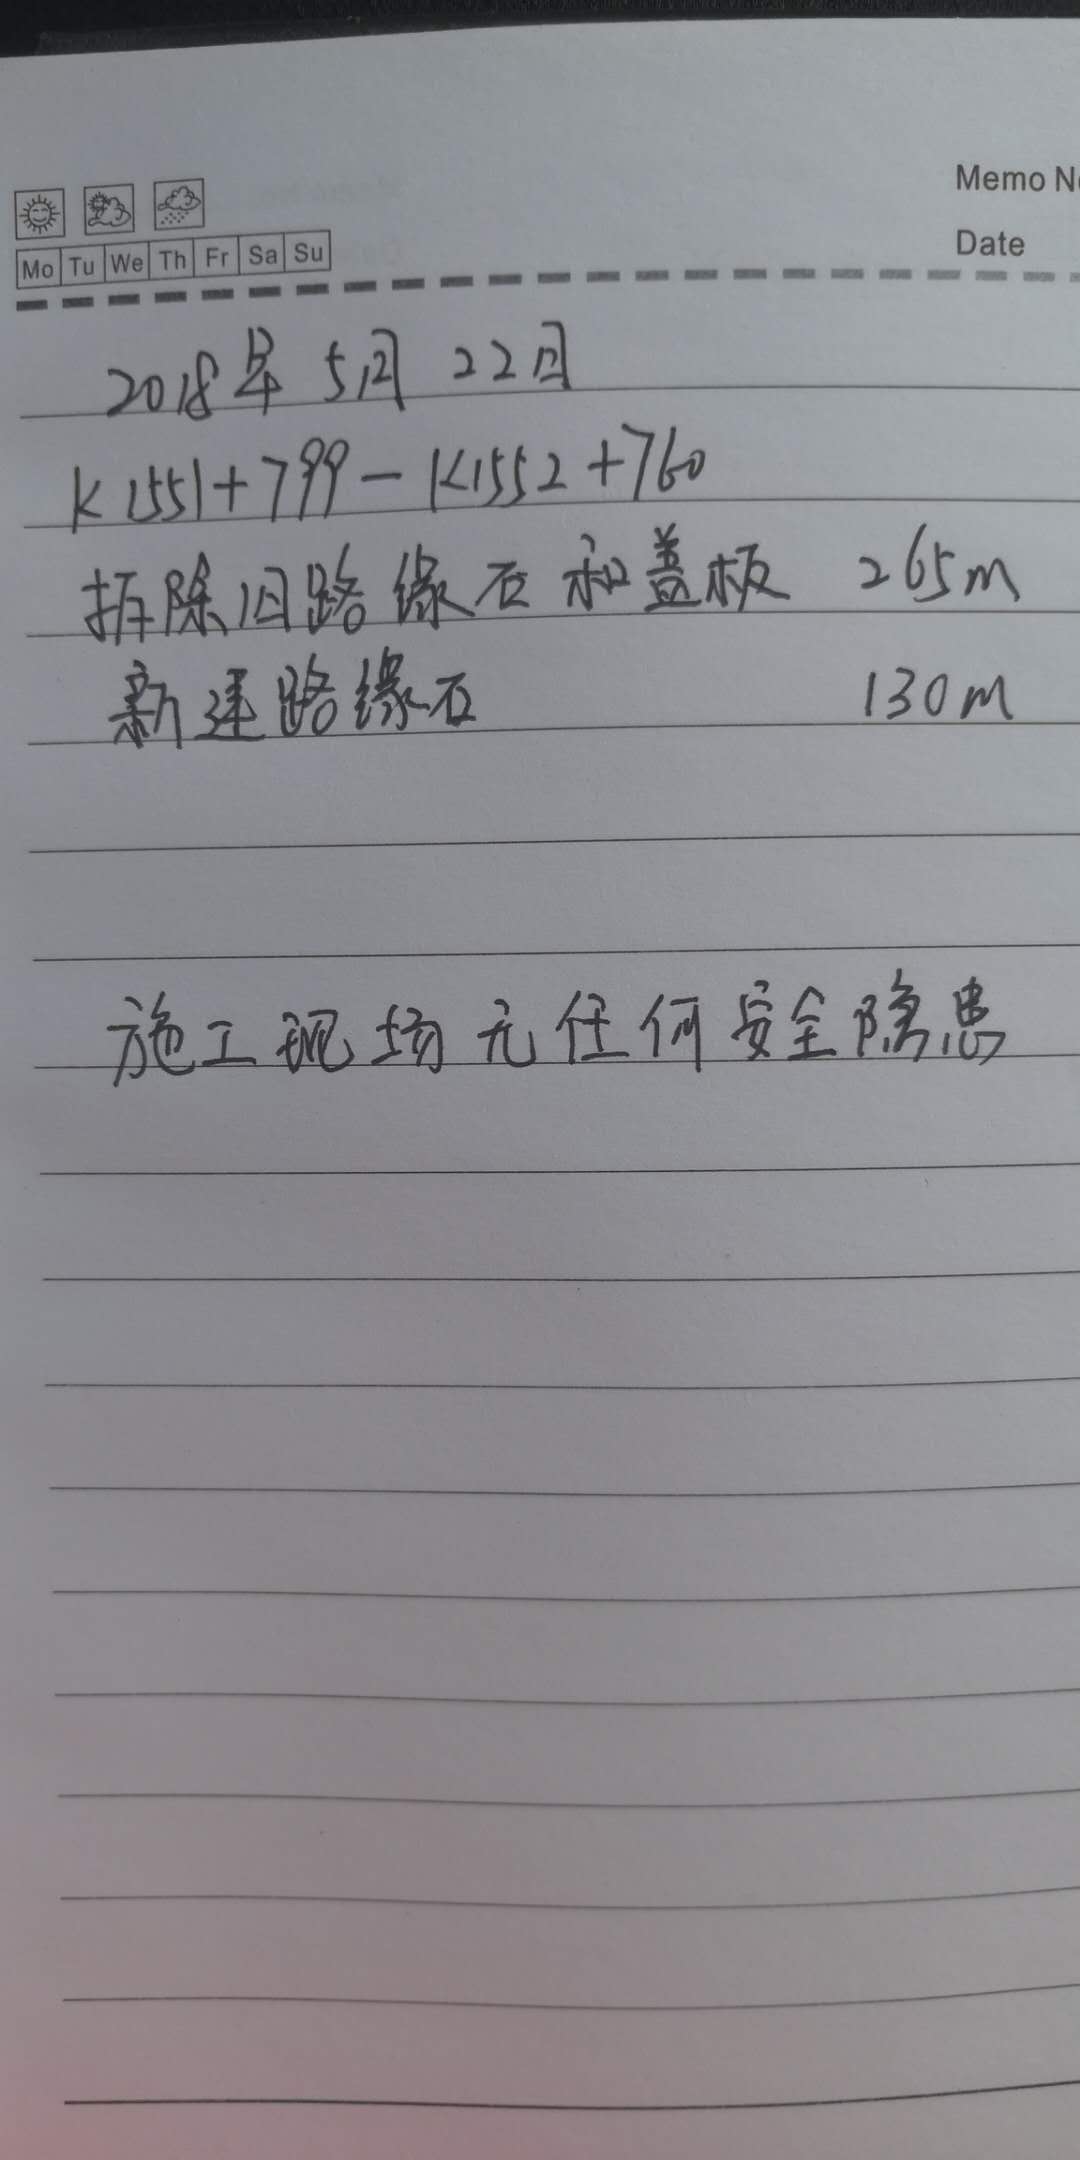 Memo N
Date
Mo Tu We Th Fr Sa Su
2018年 5月 22日
K1551+799-K1552+760
拆除旧路缘石和盖板 265m
新建路缘石 130m
施工现场无任何安全隐患